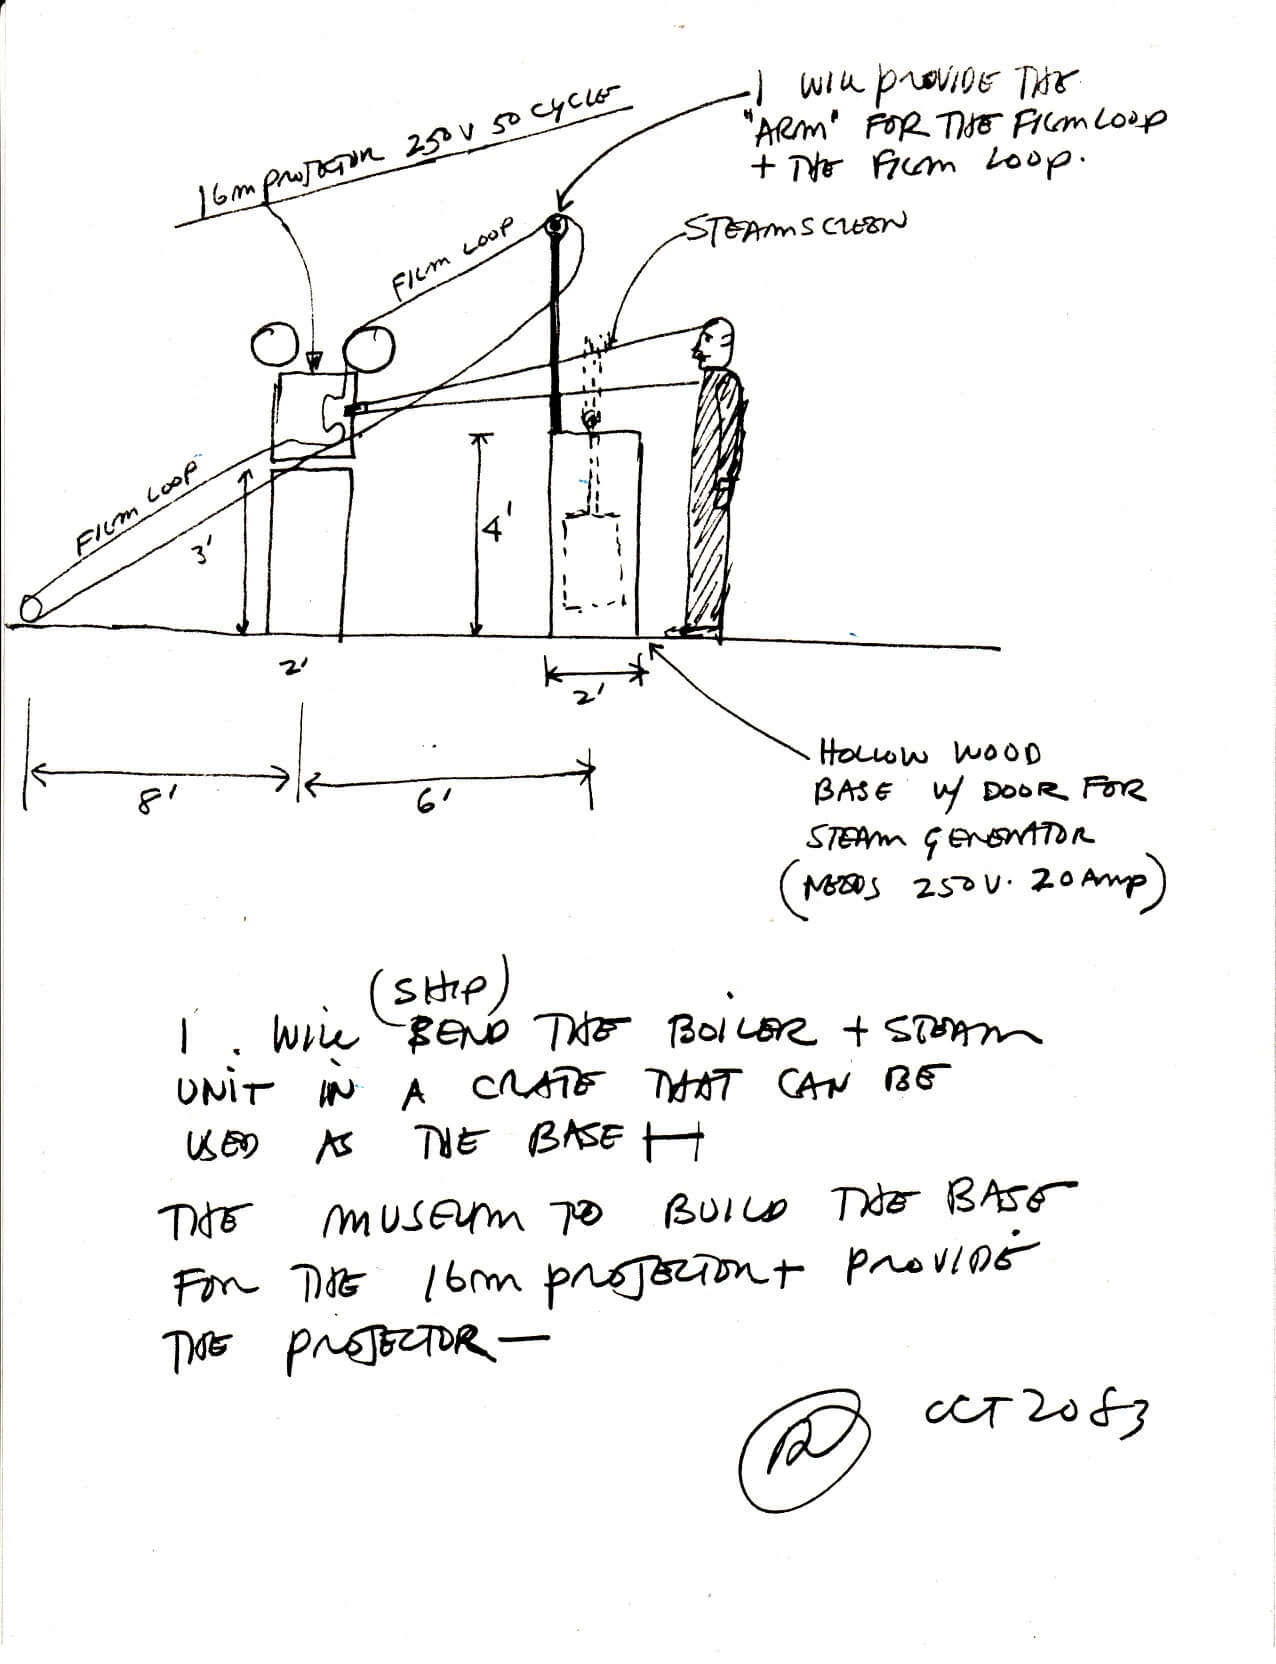 I WILL PROVIDE THE
"ARM" FOR THE FILM LOOP
+ THE FILM LOOP.
16m PROJECTOR 250 V 50 CYCLE
STEAM SCREEN
FILM LOOP
FILM LOOP
3'
4'
2'
2'
8'
6'
HOLLOW WOOD
BASE W/ DOOR FOR
STEAM GENERATOR
(NEEDS 250 V. 20 AMP)
(SHIP)
I. WILL SEND THE BOILER + STEAM
UNIT IN A CRATE THAT CAN BE
USED AS THE BASE
THE MUSEUM TO BUILD THE BASE
FOR THE 16m PROJECTOR + PROVIDE
THE PROJECTOR —
OCT 20 83